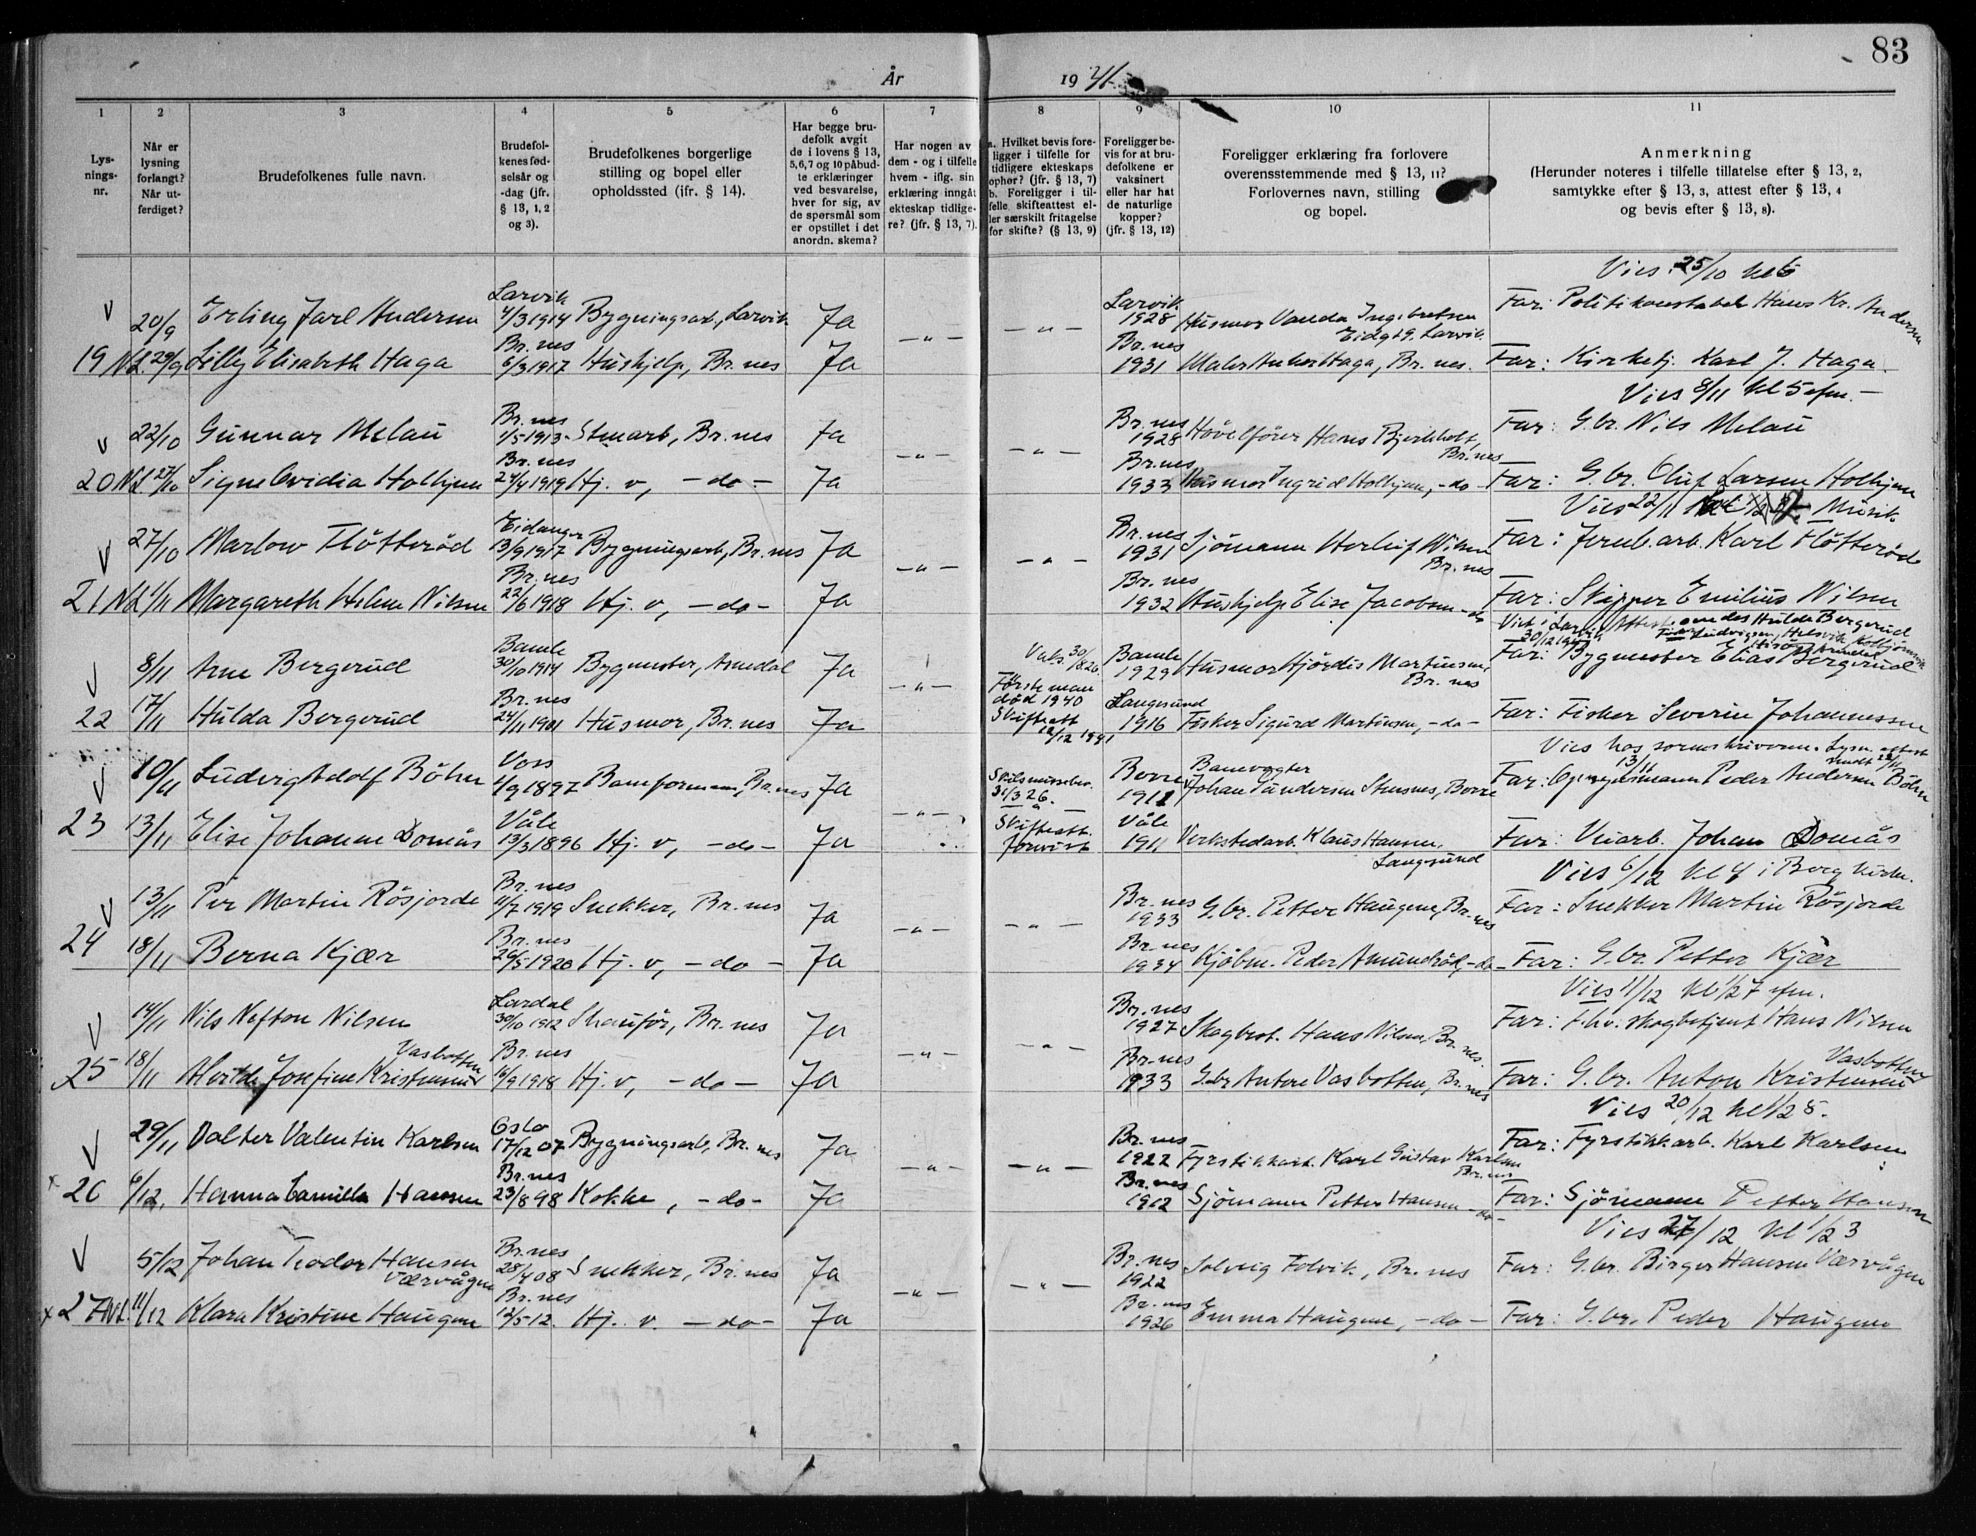 83
År 1941
1 2 3 4 5 6 7 8 9 10 11
Lysningsnr.
Når er lysning forlangt? Når utferdiget?
Brudefolkenes fulle navn.
Brudefolkenes fødselsår og -dag (jfr. § 13, 1, 2 og 3).
Brudefolkenes borgerlige stilling og bopel eller opholdssted (ifr. § 14).
Har begge brudefolk avgit de i lovens § 13, 5,6,7 og 10 påbudte erklæringer ved besvarelse, hver for sig, av de spørsmål som er opstillet i det anordn. skema?
Har nogen av dem - og i tilfelle hvem - iflg. sin erklæring inngått ekteskap tidligere? (jfr. § 13, 7).
a. Hvilket bevis foreligger i tilfelle for tidligere ekteskaps ophør? (jfr. § 13, 7) b. Foreligger i tilfelle skifteattest eller særskilt fritagelse for skifte? (§ 13, 9)
Foreligger bevis for at brudefolkene er vaksinert eller har hat de naturlige kopper? (jfr. § 13, 12)
Foreligger erklæring fra forlovere overensstemmende med § 13, 11? Forlovernes navn, stilling og bopel.
Anmerkning (Herunder noteres i tilfelle tillatelse efter § 13, 2, samtykke efter § 13, 3, attest efter § 13, 4 og bevis efter § 13, 8).
Vies 25/10 kl 5
V 20/9 Erling Jarl Andersen Larvik 4/3 1914 Bygningsarb., Larvik Ja Larvik 1928 Husmor Vanda Ingebretsen Eidgt 9. Larvik. Far: Politikonstabel Hans Kr. Andersen
19 Nd. 29/9 Lilly Elisabeth Haga Br.nes 6/3 1917 Hushjelp, Br.nes Ja — " — — " — Br.nes 1931 Maler Anker Haga, Br.nes. Far: Kirketj. Karl J. Haga.
Vies 8/11 kl 5 efm. —
V 22/10 Gunnar Melau Br.nes 1/5 1913 Stenarb, Br.nes Ja Br.nes 1928 Høvelfører Hans Bjerkholt, Br.nes Far: G.br. Nils Melau
20 Nd. 27/10 Signe Ovidia Holhjem Br.nes 24/4 1919 Hj. v, — do — Ja — " — — " — Br.nes 1933 Husmor Ingrid Holhjem, — do — Far: G.br. Oluf Larsen Holhjem
Vies 22/11 Musik
V 27/10 Marlow Fløtterød Eidanger 13/9 1917 Bygningsarb, Br.nes Ja Br.nes 1931 Sjømann Herleif Nilsen Br.nes Far: Jernb.arb. Karl Fløtterød
21 Nd. 1/11 Margareth Helene Nilsen Br.nes 22/6 1918 Hj. v, — do — Ja — " — — " — Br.nes 1932 Hushjelp Elise Jacobsen — do Far: Skipper Emilius Nilsen
Vies i Larvik 30/12 1941 Attest om des Hulda Bergerud
V 8/11 Arne Bergerud Bamle 30/10 1914 Bygmester, Asmedal Ja Bamle 1929 Husmor Hjørdis Martinsen, Br.nes Far: Bygmester Elias Bergerud
22 17/11 Hulda Bergerud Br.nes 24/11 1901 Husmor, Br.nes Ja — " — Første man død 1940 Skifteatt 12/12 1941 Langesund 1916 Fisker Sigurd Martinsen, — do — Far: Fisker Severin Johannessen
Vies hos sorenskriveren. Lysn. attest
V 10/11 Ludvig Adolf Böhn Voss 4/9 1897 Baneformann, Br.nes Ja Skilsmissebev. 31/3 26. Borre 1911 Banevogter Johan Sandersen Stensnes, Borre Far: Peder Andersen Böhn
23 13/11 Elise Johanne Domås Våle 13/3 1896 Hj. v, — do — Ja — " — Skifteatt. forevist Våle 1911 Verkstedarb. Klaus Hansen, Langesund Far: Veiarb. Johan Domås
Vies 6/12 kl 4 i Berg kirke.
V 13/11 Per Martin Røsjorde Br.nes 11/7 1919 Snekker, Br.nes Ja Br.nes 1933 G.br. Petter Haugene, Br.nes Far: Snekker Martin Røsjorde
24 18/11 Berna Kjær Br.nes 29/5 1920 Hj. v, — do — Ja — " — — " — Br.nes 1934 Kjøbm. Peder Amundrød, — do — Far: G.br. Petter Kjær
Vies 11/12 kl 1/2 7 efm.
V 14/11 Nils Nefton Nilsen Lardal 30/10 1912 Shauför, Br.nes Ja Br.nes 1927 Skogbest. Hans Nilsen, Br.nes. Far: f.hv. skogbetjent Hans Nilsen
25 18/11 Herdis Josefine Kristensen Vasbotten Br.nes 16/9 1918 Hj. v, — do — Ja — " — — " — Br.nes 1933 G.br Antore Vasbotten, Br.nes Far: G.br. Anton Kristensen Vasbotten
Vies 20/12 kl 1/2 5.
V 29/11 Valter Valentin Karlsen Oslo 17/12 07 Bygningsarb, Br.nes Ja Br.nes 1922 Fyrstikkarb. Karl Gustav Karlsen Br.nes Far: Fyrstikkarb. Karl Karlsen
x 26 6/12. Hanna Camilla Hansen Br.nes 23/8 98 Kokke, — do — Ja — " — — " — Br.nes 1912 Sjømann Petter Hansen — do — Far: Sjømann Petter Hansen
Vies 27/12 kl 1/2 3
V 5/12 Johan Teodor Hansen Værvågen Br.nes 28/4 08 Snekker, Br.nes Ja Br.nes 1922 Solveig Folvik, Br.nes Far: G.br. Birger Hansen Værvågen
x 27 Nd. 11/12 Klara Kristine Haugene Br.nes 12/5 12. Hj. v. — do — Ja — " — — " — Br.nes 1926 Emma Haugene, — do — Far: G.br. Peder Haugene